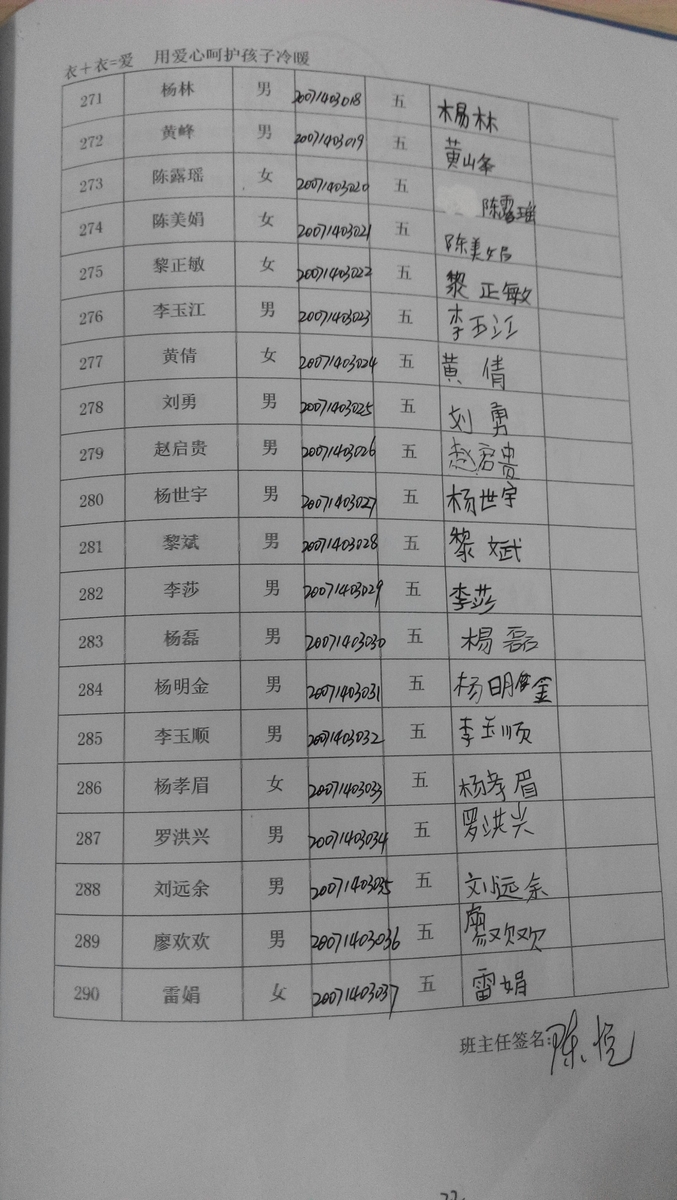 衣+衣=爱 用爱心呵护孩子冷暖
271 杨林 男 20071403018 五 杨林
272 黄峰 男 20071403019 五 黄峰
273 陈露瑶 女 20071403020 五 陈露瑶
274 陈美娟 女 20071403021 五 陈美娟
275 黎正敏 女 20071403022 五 黎正敏
276 李玉江 男 20071403023 五 李玉江
277 黄倩 女 20071403024 五 黄倩
278 刘勇 男 20071403025 五 刘勇
279 赵启贵 男 20071403026 五 赵启贵
280 杨世宇 男 20071403027 五 杨世宇
281 黎斌 男 20071403028 五 黎斌
282 李莎 男 20071403029 五 李莎
283 杨磊 男 20071403030 五 杨磊
284 杨明金 男 20071403031 五 杨明金
285 李玉顺 男 20071403032 五 李玉顺
286 杨孝眉 女 20071403033 五 杨孝眉
287 罗洪兴 男 20071403034 五 罗洪兴
288 刘远余 男 20071403035 五 刘远余
289 廖欢欢 男 20071403036 五 廖欢欢
290 雷娟 女 20071403037 五 雷娟
班主任签名: 陈